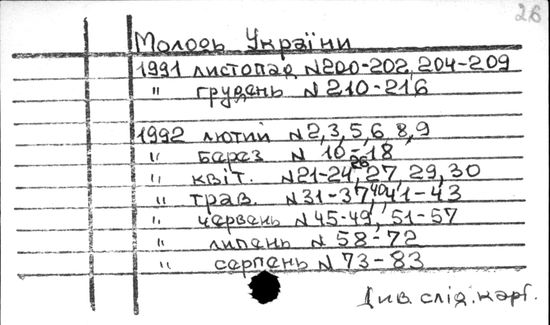 26
Молодь України
1991 листопад N200-202, 204-209
" грудень N 210-216
1992 лютий N2,3,5,6 8,9
" берез N 10-18
" квіт. N21-24, 26, 27, 29, 30
" трав. N31-37, 40, 41-43
" червень N45-49, 51-57
" липень N 58-72
" серпень N 73-83
Див. слід. карт.